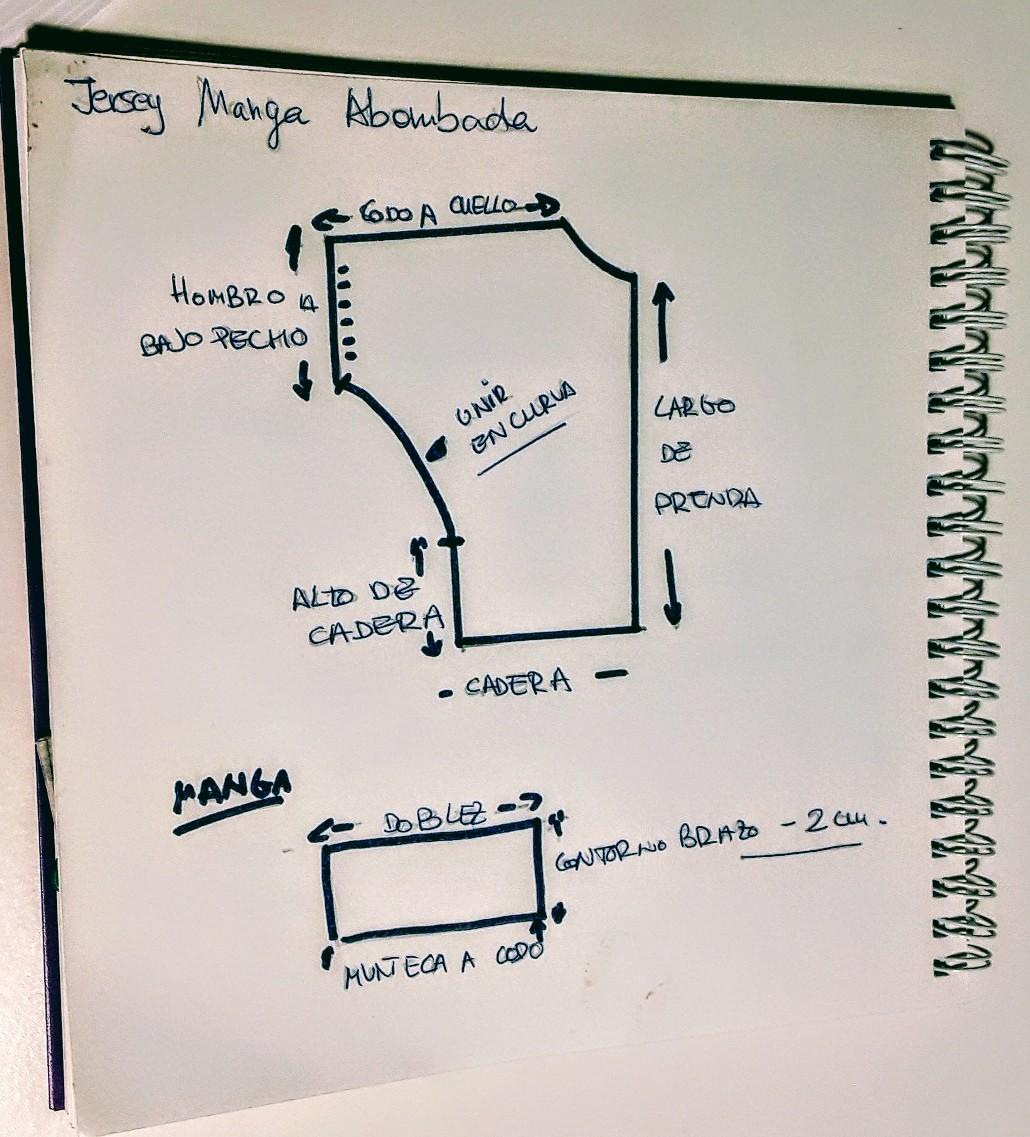 Jersey Manga Abombada
CODO A CUELLO
HOMBRO A
BAJO PECHO
UNIR
EN CURVA
LARGO
DE
PRENDA
ALTO DE
CADERA
- CADERA -
MANGA
DOBLEZ
CONTORNO BRAZO - 2 cm.
MUNTECA A CODO